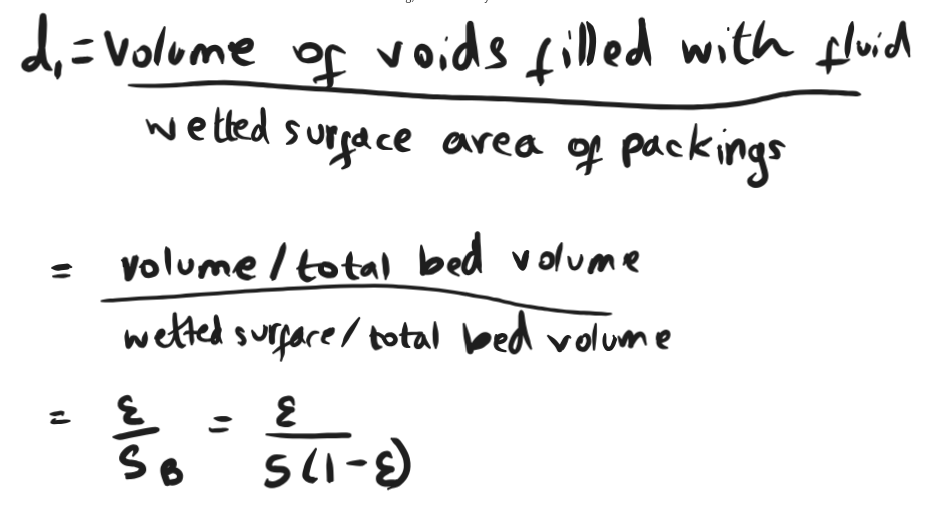 d₁ = Volume of voids filled with fluid
wetted surface area of packings
= volume / total bed volume
wetted surface / total bed volume
= ε / S_B = ε / S(1-ε)